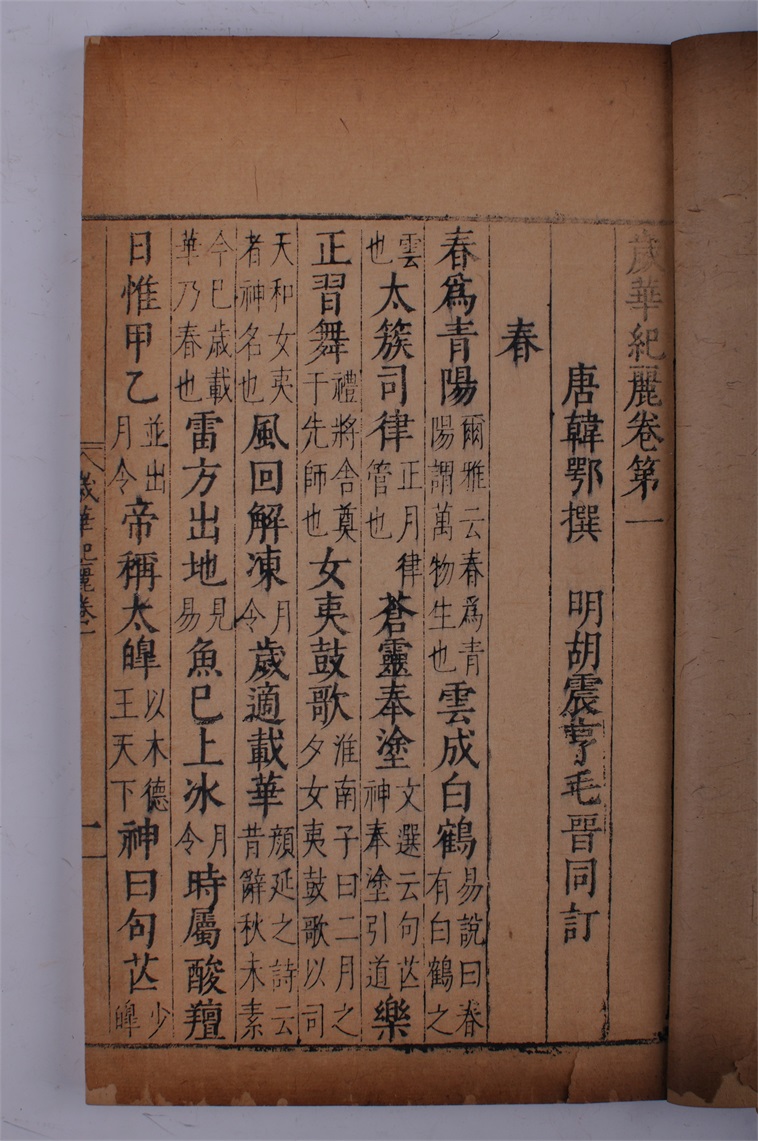 歲華紀麗卷第一
唐韓鄂撰　明胡震亨毛晉同訂
春
春爲青陽爾雅云春爲青陽謂萬物生也雲成白鶴易說曰春有白鶴之
雲也太簇司律正月律管也蒼靈奉塗文選云句芒神奉塗引道樂
正習舞禮將舍奠于先師也女夷鼓歌淮南子曰二月之夕女夷鼓歌以司
天和女夷者神名也風回解凍月令歲適載華顏延之詩云昔辭秋未素
今巳歲載華乃春也雷方出地見易魚巳上冰月令時屬酸羶
日惟甲乙並出月令帝稱太皡以木德王天下神曰句芒少皡
歲華紀麗卷一　一